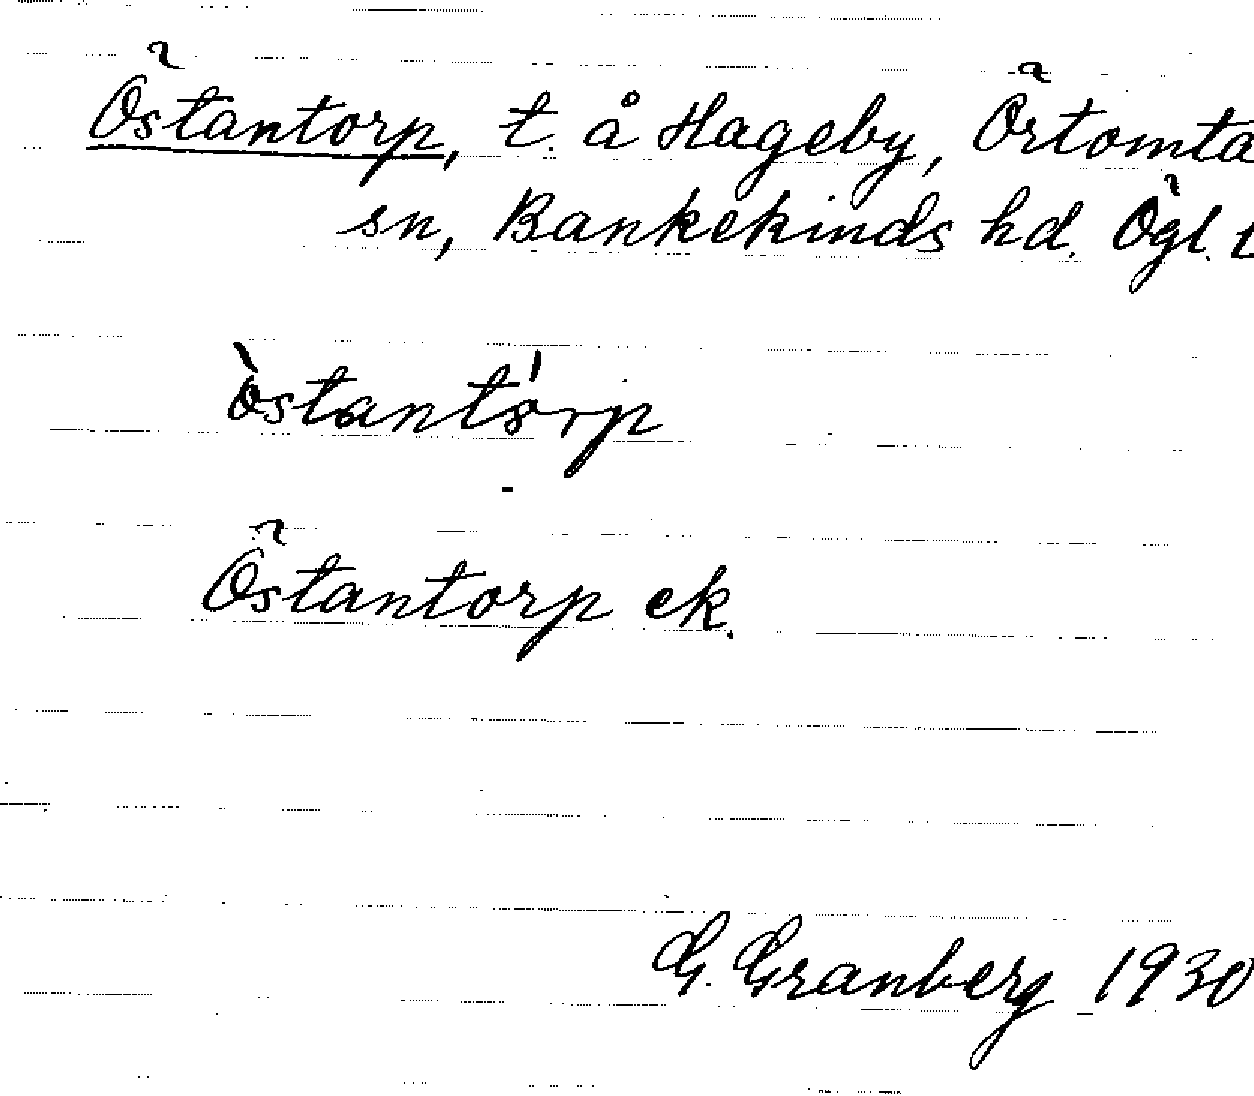 Östantorp, t. å Hageby, Örtomta
sn, Bankekinds hd. Ögl. l
òstant`órp
Östantorp ek.
G. Granberg 1930